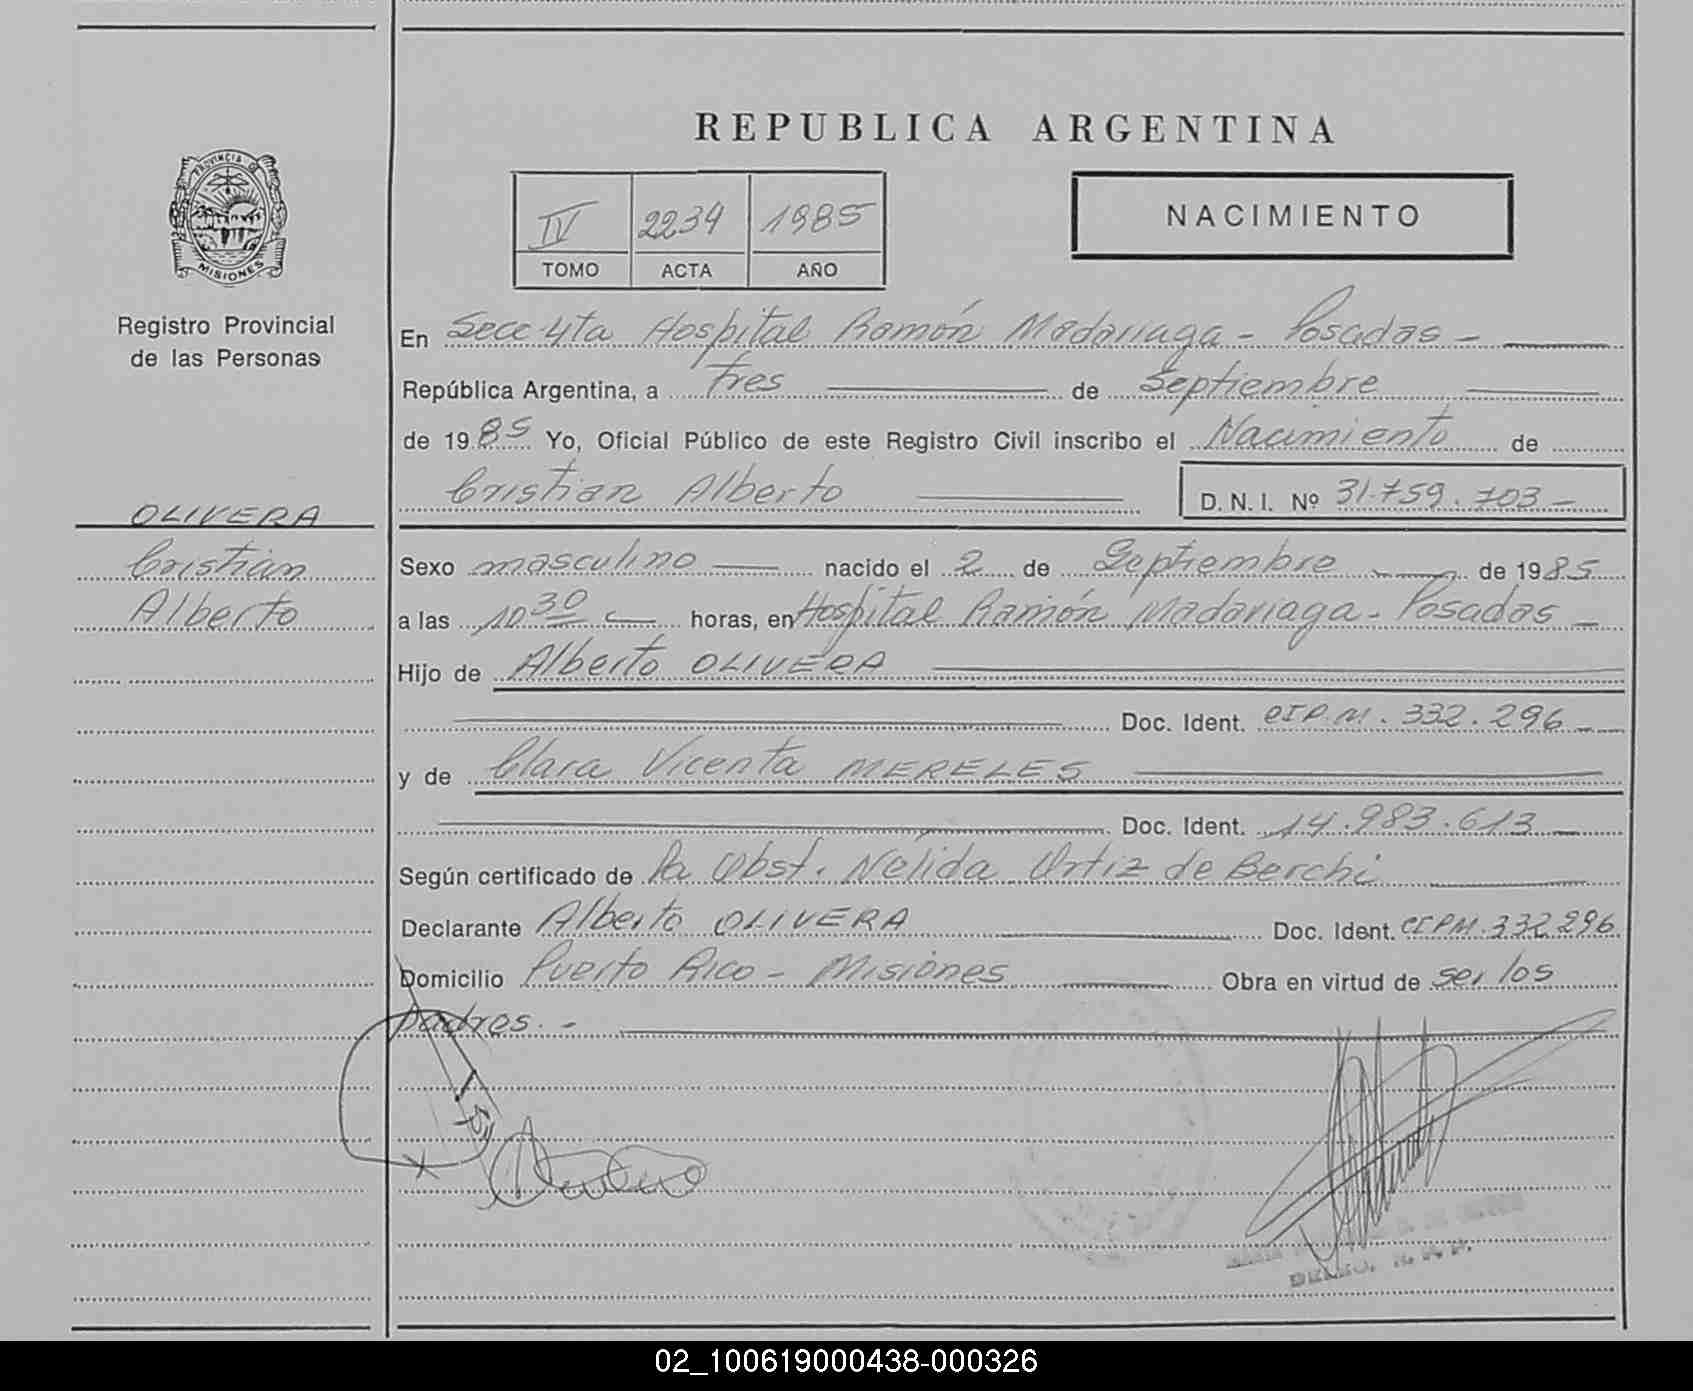 REPUBLICA ARGENTINA
PROVINCIA DE
MISIONES
Registro Provincial
de las Personas
IV 2234 1985
TOMO ACTA AÑO
NACIMIENTO
En Secc 4ta Hospital Ramón Madariaga - Posadas -
República Argentina, a Tres de Septiembre
de 1985 Yo, Oficial Público de este Registro Civil inscribo el Nacimiento de
Cristian Alberto D.N.I. Nº 31.759.703-
OLIVERA
Cristian
Alberto
Sexo masculino nacido el 2 de Septiembre de 1985
a las 10 30 horas, en Hospital Ramón Madariaga - Posadas -
Hijo de Alberto OLIVERA
Doc. Ident. CIP.M. 332.296
y de Clara Vicenta MERELES
Doc. Ident. 14.983.613
Según certificado de la Obst. Nélida Ortiz de Berchi
Declarante Alberto OLIVERA Doc. Ident. CIPM.332296
Domicilio Puerto Rico - Misiones Obra en virtud de ser los
padres. -
02_100619000438-000326